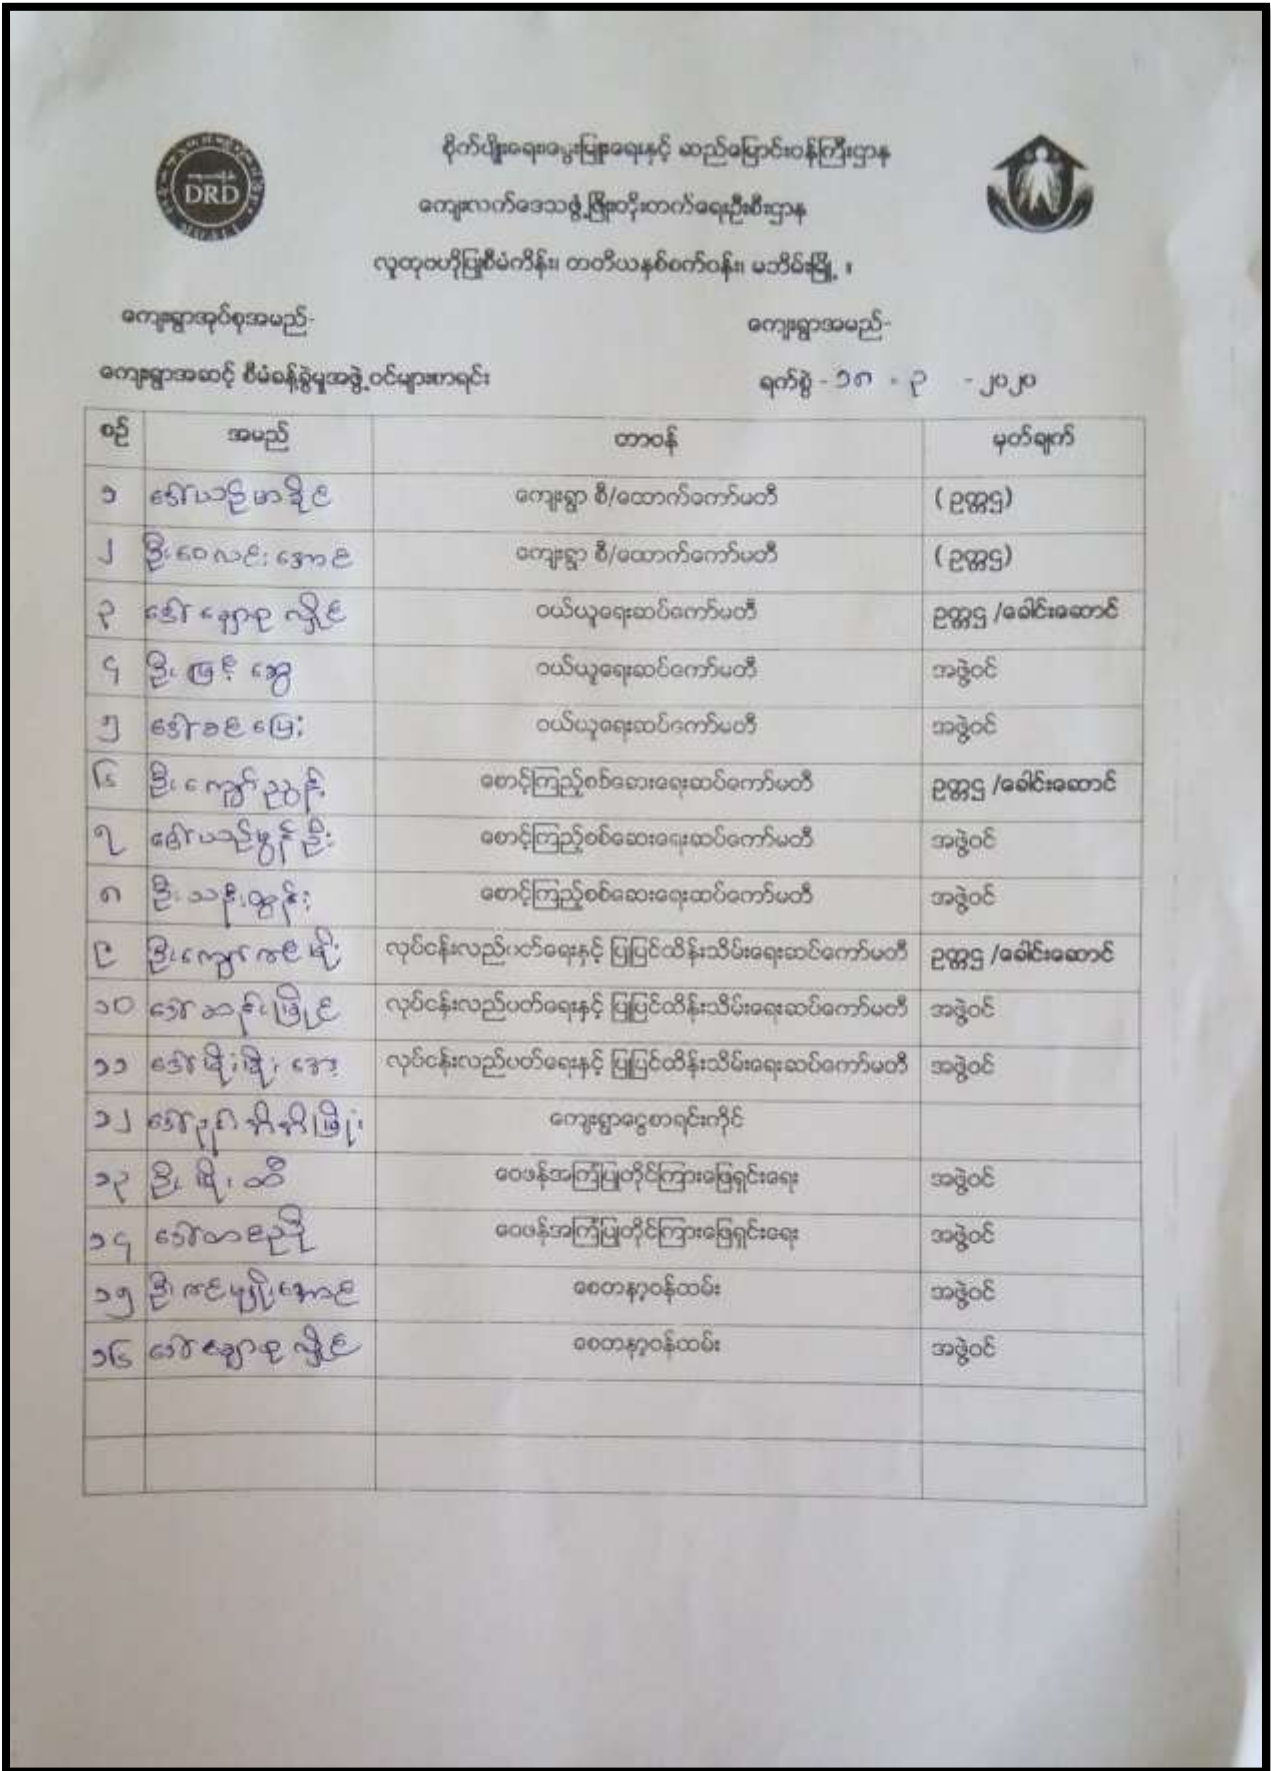 စိုက်ပျိုးရေး၊မွေးမြူရေးနှင့် ဆည်မြောင်းဝန်ကြီးဌာန
DRD
ကျေးလက်ဒေသဖွံ့ဖြိုးတိုးတက်ရေးဦးစီးဌာန
လူထုဗဟိုပြုစီမံကိန်း၊ တတိယနှစ်စက်ဝန်း၊ မဘိမ်းမြို့ ။
ကျေးရွာအုပ်စုအမည်- ကျေးရွာအမည်-
ကျေးရွာအဆင့် စီမံခန့်ခွဲမှုအဖွဲ့ဝင်များစာရင်း ရက်စွဲ - ၁၈ - ၃ - ၂၀၂၀
စဉ် အမည် တာဝန် မှတ်ချက်
၁ ဒေါ် ကျေးရွာ စီ/ထောက်ကော်မတီ (ဥက္ကဌ)
၂ ဦးဝေလင်းအောင် ကျေးရွာ စီ/ထောက်ကော်မတီ (ဥက္ကဌ)
၃ ဒေါ် လှိုင် ဝယ်ယူရေးဆပ်ကော်မတီ ဥက္ကဌ /ခေါင်းဆောင်
၄ ဦးမြင့်ဆွေ ဝယ်ယူရေးဆပ်ကော်မတီ အဖွဲ့ဝင်
၅ ဒေါ် ဝယ်ယူရေးဆပ်ကော်မတီ အဖွဲ့ဝင်
၆ ဦးကျော်ညွန့် စောင့်ကြည့်စစ်ဆေးရေးဆပ်ကော်မတီ ဥက္ကဌ /ခေါင်းဆောင်
၇ ဒေါ်ယဉ်မွန်ဦး စောင့်ကြည့်စစ်ဆေးရေးဆပ်ကော်မတီ အဖွဲ့ဝင်
၈ ဦးသန်းထွန်း စောင့်ကြည့်စစ်ဆေးရေးဆပ်ကော်မတီ အဖွဲ့ဝင်
၉ ဦးကျော်ဇင်မိုး လုပ်ငန်းလည်ပတ်ရေးနှင့် ပြုပြင်ထိန်းသိမ်းရေးဆပ်ကော်မတီ ဥက္ကဌ /ခေါင်းဆောင်
၁၀ ဒေါ် လုပ်ငန်းလည်ပတ်ရေးနှင့် ပြုပြင်ထိန်းသိမ်းရေးဆပ်ကော်မတီ အဖွဲ့ဝင်
၁၁ ဒေါ်မိုးမိုးအေး လုပ်ငန်းလည်ပတ်ရေးနှင့် ပြုပြင်ထိန်းသိမ်းရေးဆပ်ကော်မတီ အဖွဲ့ဝင်
၁၂ ဒေါ် ကျေးရွာငွေစာရင်းကိုင်
၁၃ ဦးမိုးသီ ဝေဖန်အကြံပြုတိုင်ကြားဖြေရှင်းရေး အဖွဲ့ဝင်
၁၄ ဒေါ် ဝေဖန်အကြံပြုတိုင်ကြားဖြေရှင်းရေး အဖွဲ့ဝင်
၁၅ ဦးဇင်မျိုးအောင် စေတနာ့ဝန်ထမ်း အဖွဲ့ဝင်
၁၆ ဒေါ် လှိုင် စေတနာ့ဝန်ထမ်း အဖွဲ့ဝင်